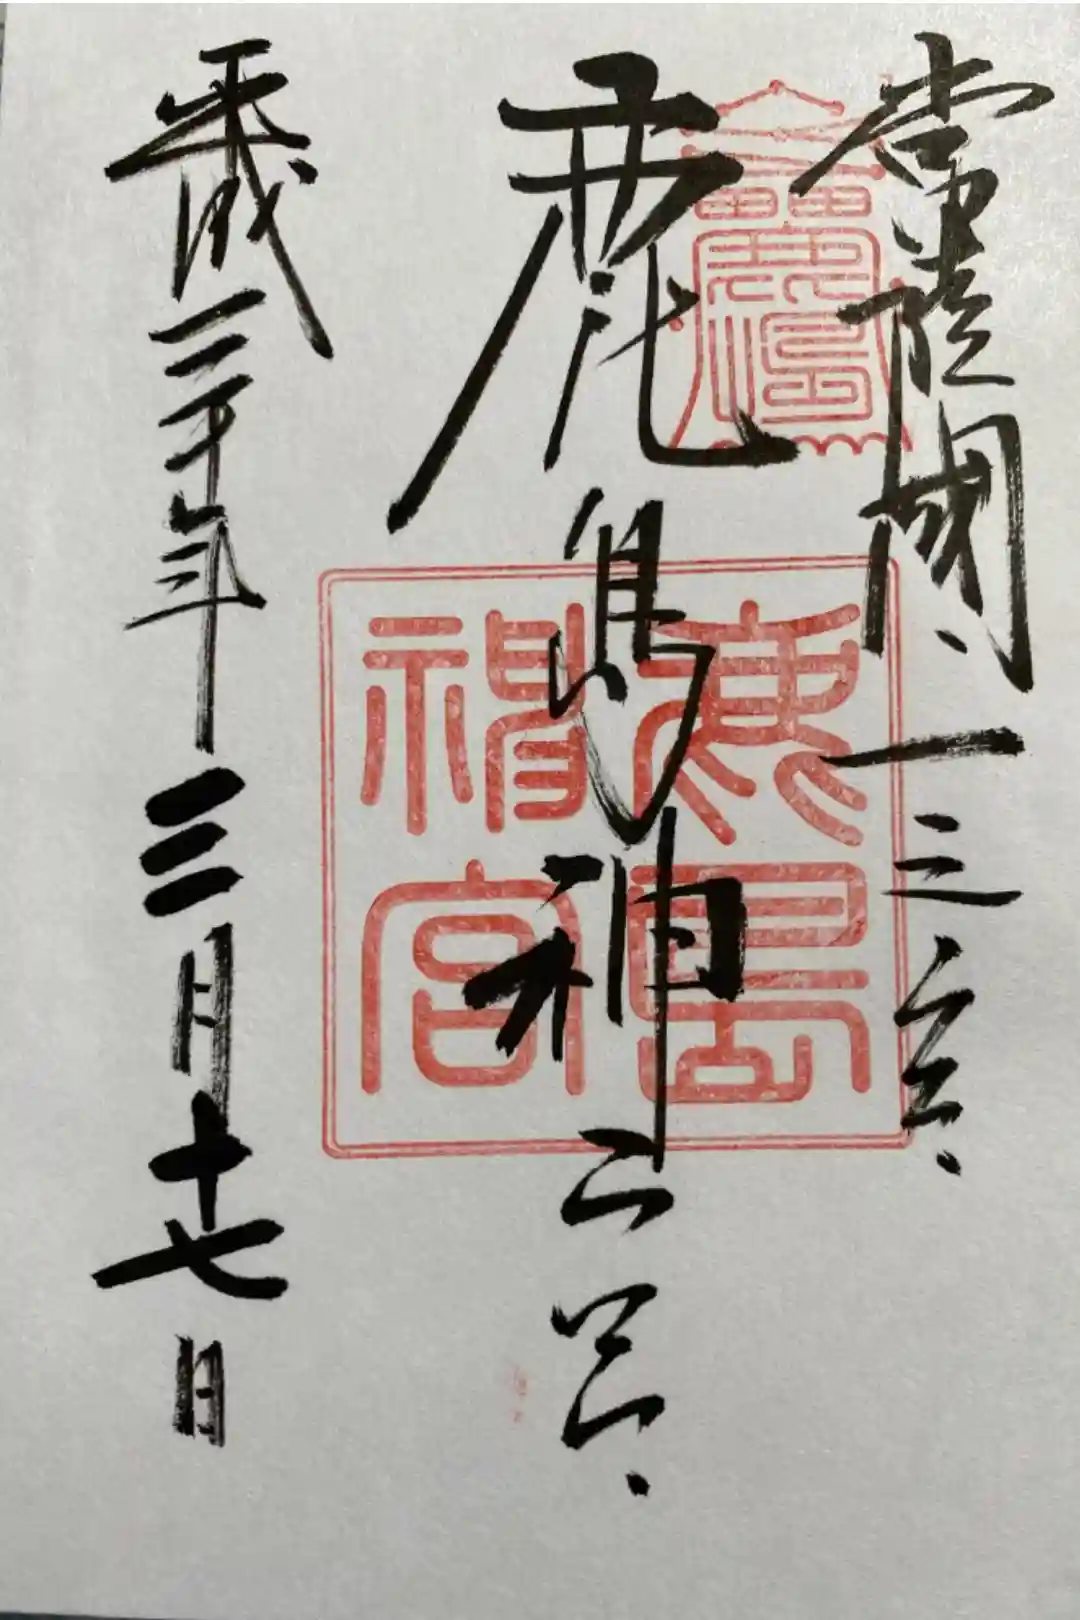 常陸國一之宮
鹿島神宮
平成三十年三月十七日
鹿島
神宮